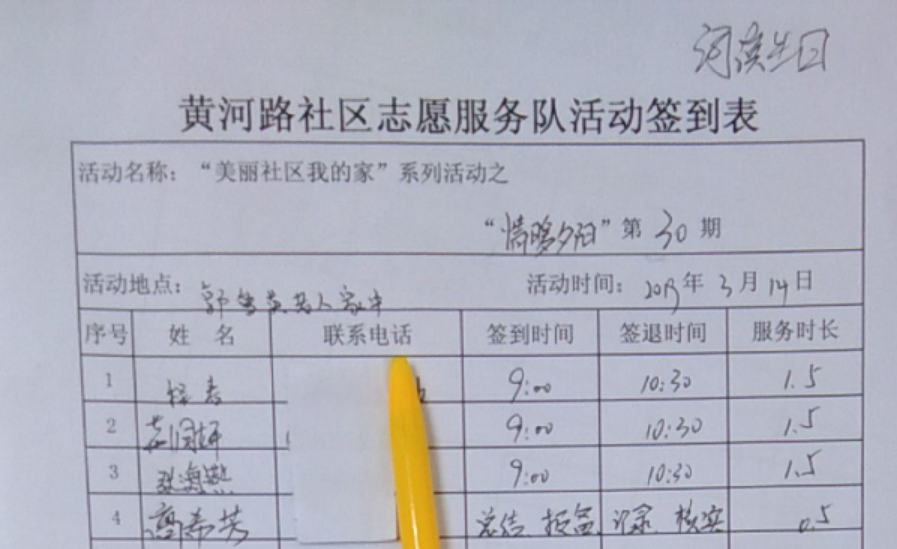 生日
黄河路社区志愿服务队活动签到表
活动名称：“美丽社区我的家”系列活动之
“情暖夕阳”第30期
活动地点：老人家中 活动时间：2019年3月14日
序号 姓 名 联系电话 签到时间 签退时间 服务时长
1 9:00 10:30 1.5
2 9:00 10:30 1.5
3 9:00 10:30 1.5
4 高希芬 总结 报备 记录 核实 0.5